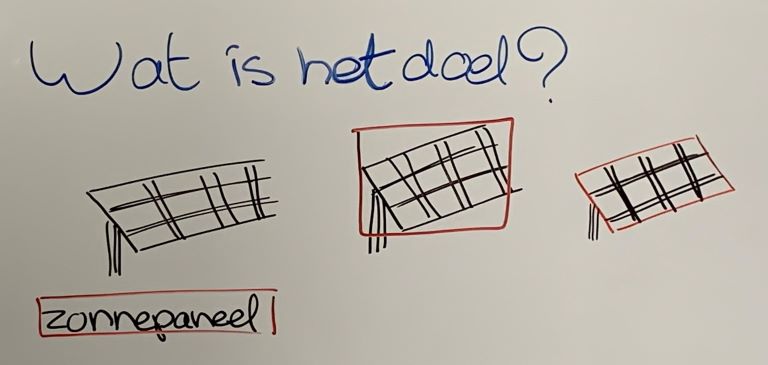 Wat is het doel?
zonnepaneel